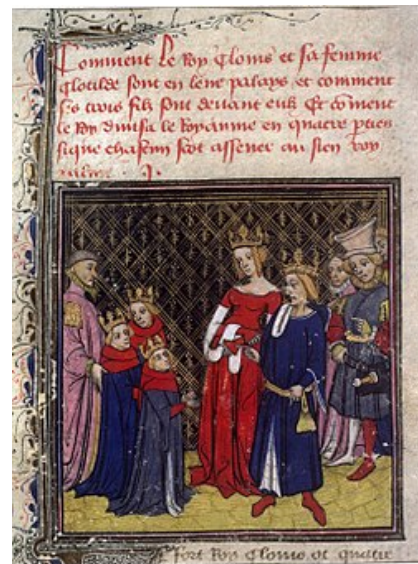 Comment Le Roy Clouis et sa femme
Clotilde sont en leur palays et comment
ses trois filz sont deuant eulz Et cōment
le Roy diuisa le Royaume en quatre pties
sique chascun scet assener au sien roy
aulme
fort Roy Clouis ot quatre